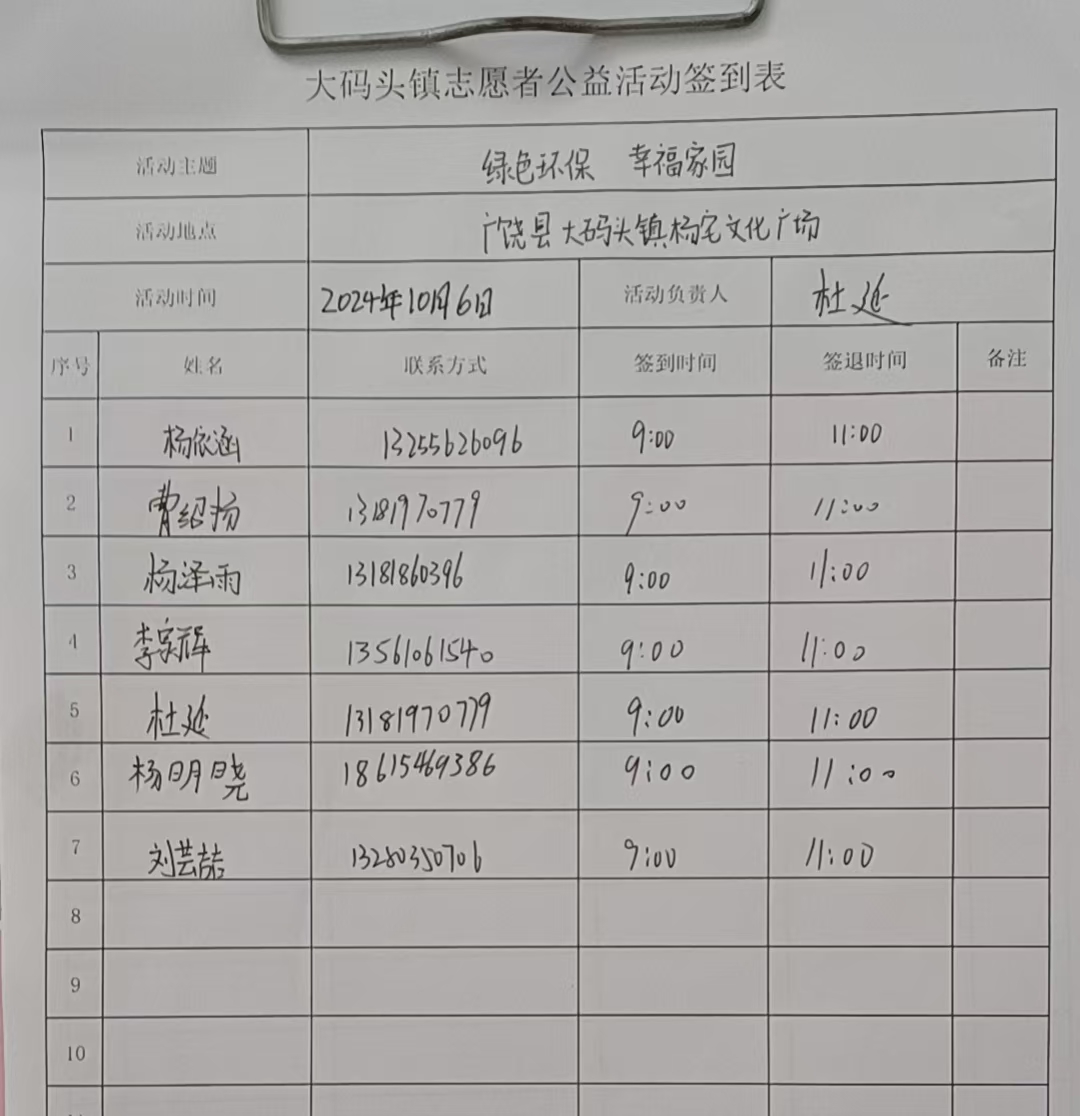 大码头镇志愿者公益活动签到表
活动主题 绿色环保 幸福家园
活动地点 广饶县大码头镇杨宅文化广场
活动时间 2024年10月6日 活动负责人 杜延
序号 姓名 联系方式 签到时间 签退时间 备注
1 杨依涵 13255626096 9:00 11:00
2 曹绍扬 13181970779 9:00 11:00
3 杨泽雨 13181860396 9:00 11:00
4 李家辉 13561061540 9:00 11:00
5 杜延 13181970779 9:00 11:00
6 杨明晓 18615469386 9:00 11:00
7 刘芸喆 13280350706 9:00 11:00
8
9
10